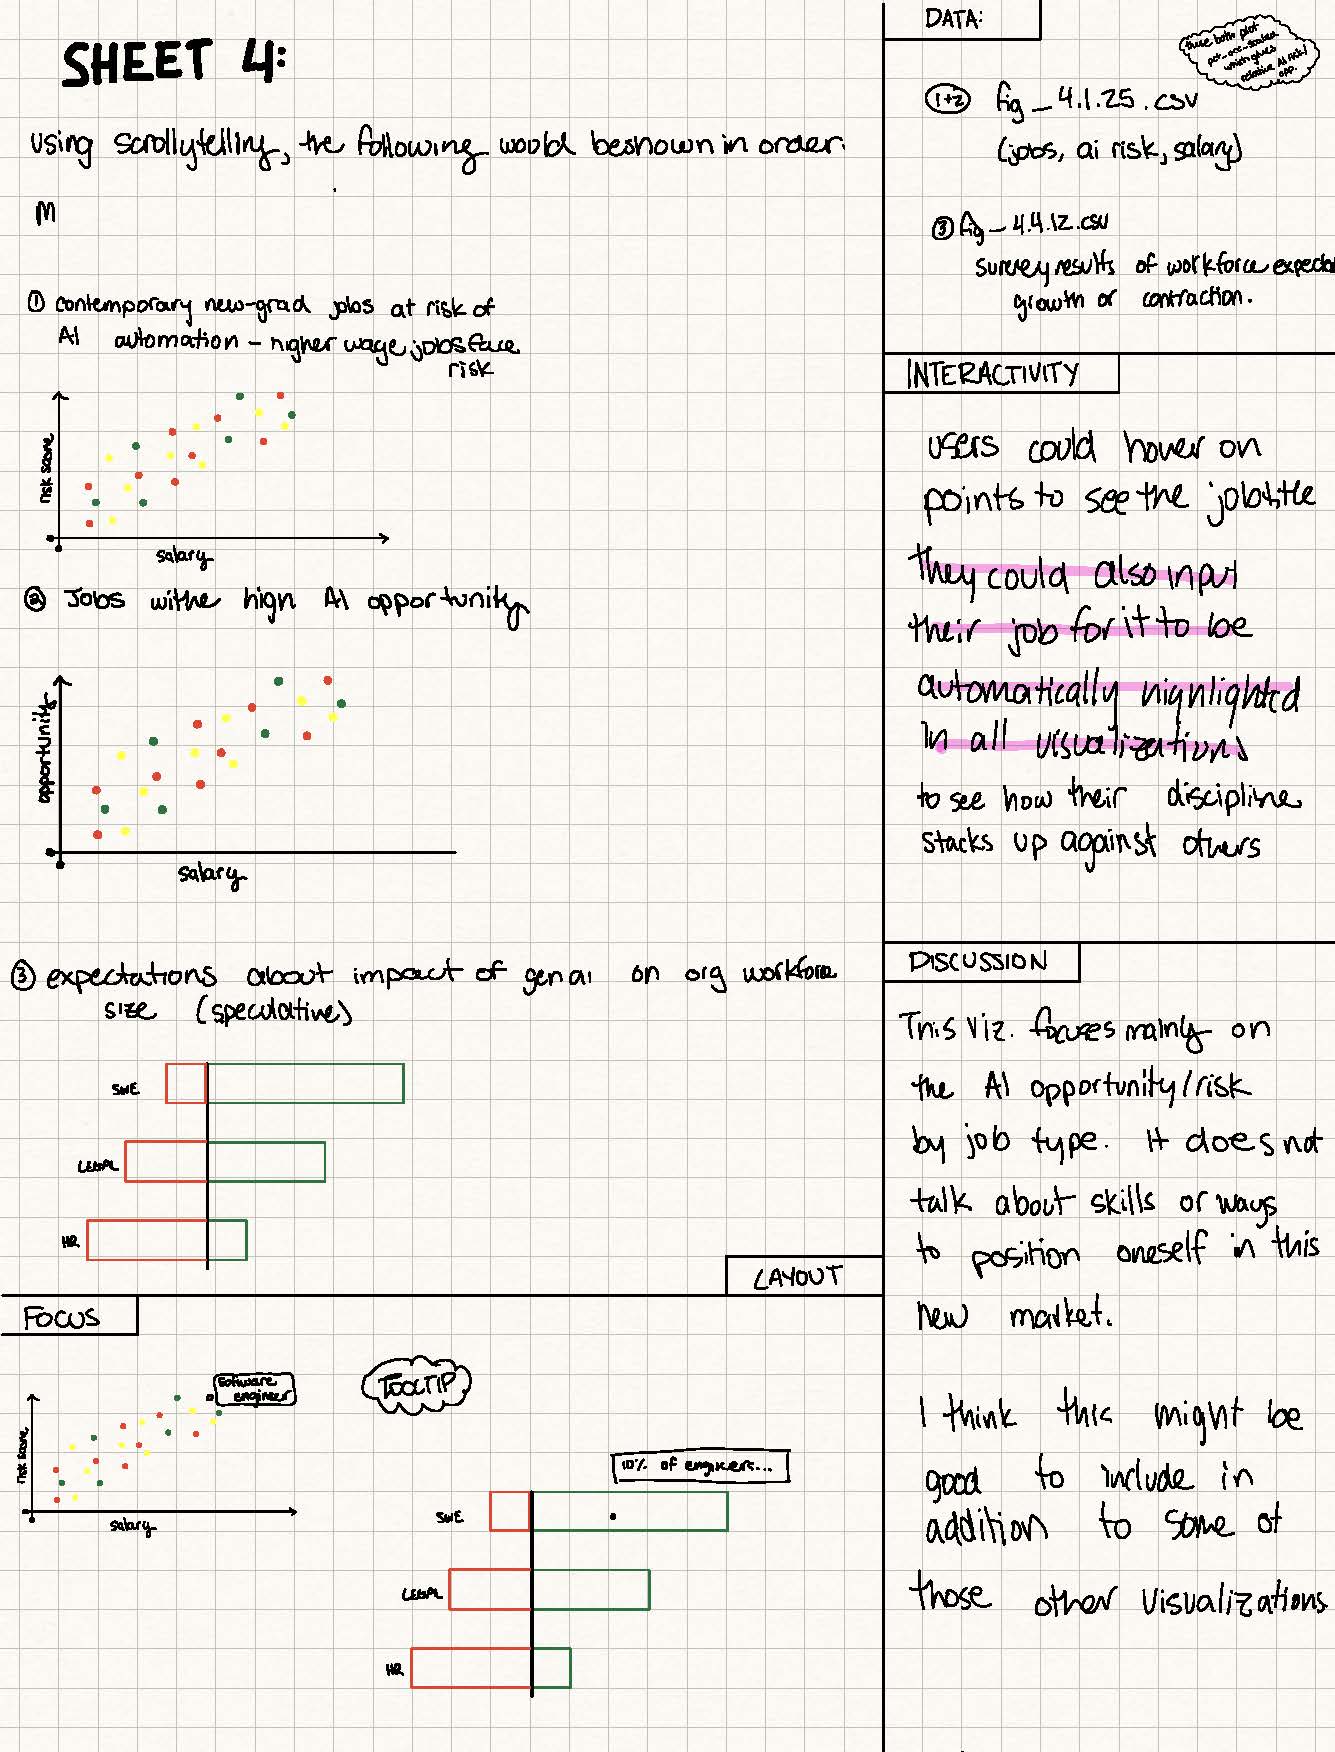 SHEET 4:
using scrollytelling, the following would be shown in order.
M
① contemporary new-grad jobs at risk of
AI automation - higher wage jobs face
risk
risk score
salary
② Jobs withe high AI opportunity
opportunity
salary
③ expectations about impact of gen ai on org workforce
size (speculative)
SWE
LEGAL
HR
LAYOUT
FOCUS
Software
engineer
risk score
salary
TOOLTIP
10% of engineers...
SWE
LEGAL
HR
DATA:
these both plot
pct-occ-scaled
which gives
relative AI risk/
opp.
1+2 fig_4.1.25.csv
(jobs, ai risk, salary)
③ fig_4.4.12.csv
survey results of workforce expecta
growth or contraction.
INTERACTIVITY
users could hover on
points to see the job title
they could also input
their job for it to be
automatically highlighted
in all visualizations
to see how their discipline
stacks up against others
DISCUSSION
This viz. focuses mainly on
the AI opportunity/risk
by job type. It does not
talk about skills or ways
to position oneself in this
new market.
I think this might be
good to include in
addition to some of
those other visualizations